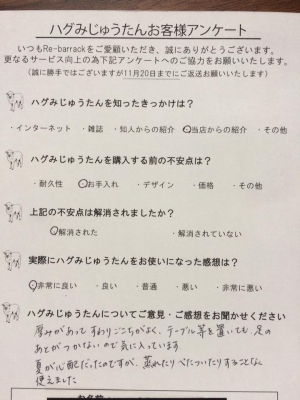 ハグみじゅうたんお客様アンケート
いつもRe-barrackをご愛顧いただき、誠にありがとうございます。
更なるサービス向上の為下記アンケートへのご協力をお願いいたします。
(誠に勝手ではございますが11月20日までにご返送お願いいたします)
ハグみじゅうたんを知ったきっかけは？
・インターネット ・雑誌 ・知人からの紹介 ・当店からの紹介 ・その他
ハグみじゅうたんを購入する前の不安点は？
・耐久性 ・お手入れ ・デザイン ・価格 ・その他
上記の不安点は解消されましたか？
・解消された ・解消されていない
実際にハグみじゅうたんをお使いになった感想は？
・非常に良い ・良い ・普通 ・悪い ・非常に悪い
ハグみじゅうたんについてご意見・ご感想をお聞かせください
厚みがあって すわりごこちがよく、テーブル等を置いても、足の
あとがつかないので気に入っています
夏が心配だったのですが、蒸れたりべたついたりすることなく
使えました
お名前